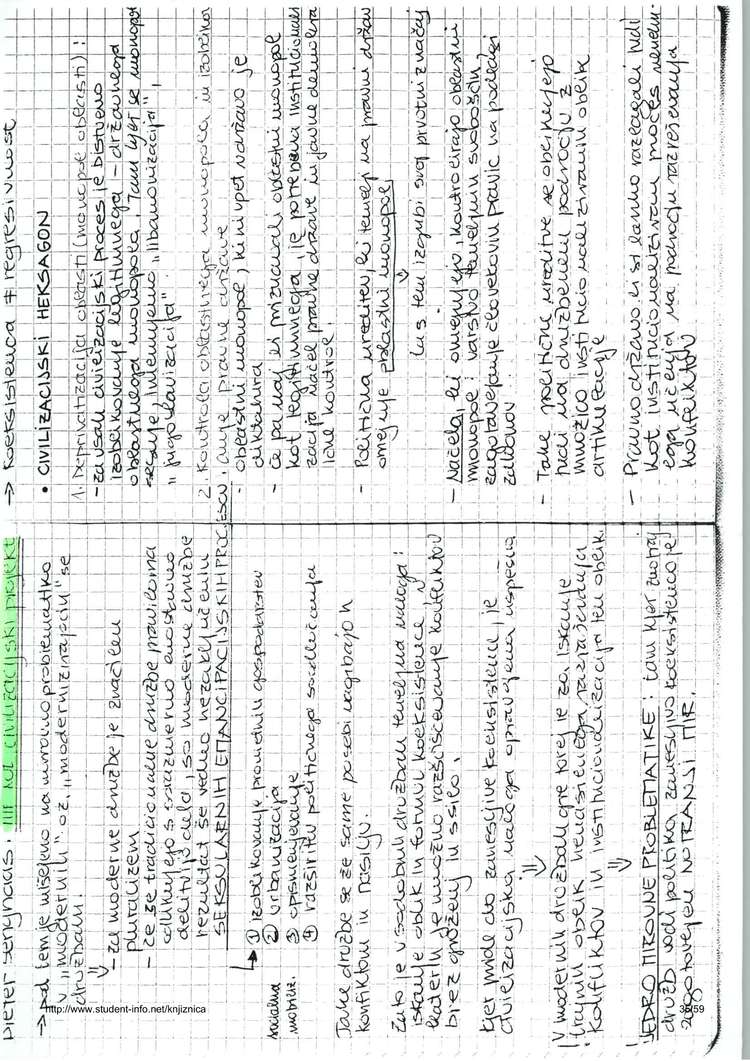 Dieter Senghaas: MIR kot civilizacijski projekt
→ pod tem je mišljeno na mirovno problematiko
v "modernih" oz. "modernizirajočih" se
družbah.
⇓
- za moderne družbe je značilen
pluralizem
- če se tradicionalne družbe praviloma
odlikujejo s razmerno enostavno
delitvijo dela, so moderne družbe
rezultat še vedno nezaključenih
SEKULARNIH EMANCIPACIJSKIH PROCESOV.
↳ ① izoblikovanje prometnih gospodarstev
② urbanizacija
socialna ③ opismenjevanje
mobiliz. ④ razširitev političnega soodločanja
Take družbe se že same po sebi nagibajo h
konfliktom in nasilju.
Zato je v sodobnih družbah temeljna naloga:
iskanje oblik in formul koeksistence, v
katerih je možno razčiščevanje konfliktov
brez groženj in s silo.
Kjer pride do zanesljive koeksistence, je
civilizacijska naloga opravljena uspešno
⇓
V modernih družbah gre torej le za iskanje
trajnih oblik nenasilnega razreševanja
konfliktov in institucionalizacija teh oblik.
⇓
JEDRO MIROVNE PROBLEMATIKE: tam kjer znotraj
družb vodi politika zanesljivo koeksistenco je
zagotovljen NOTRANJI MIR.
→ Koeksistenca ≠ regresivnost
• CIVILIZACIJSKI HEKSAGON
1. Deprivatizacija oblasti (monopol oblasti):
- za vsak civilizacijski proces je bistveno
izoblikovanje legitimnega - državnega
oblastnega monopola. Tam kjer se monopol
sesuje, imenujemo "libanonizacija",
"jugoslavizacija".
2. Kontrola oblastnega monopola in izoblikov
anje pravne države
- oblastni monopol, ki ni vpet v državo je
diktatura
- če pa naj bi priznavali oblastni monopol
kot legitimnega, je potrebna institucionali
zacija načel pravne države in javne demokra
tične kontrole.
- Politična ureditev, ki temelji na pravni državi
omejuje oblastni monopol
⇓
ta s tem izgubi svoj prvotni značaj
- Načela, ki omejujejo, kontrolirajo oblastni
monopol: varstvo temeljnih svoboščin,
zagotavljanje človekovih pravic na podlagi
zakonov.
- Take politične ureditve se oblikujejo
tudi na družbenem področju z
množico institucionaliziranih oblik
artikulacije
- Pravno državo bi si lahko razlagali tudi
kot institucionaliziran proces nenehn-
ega učenja na področju razreševanja
konfliktov
http://www.student-info.net/knjiznica
35/59